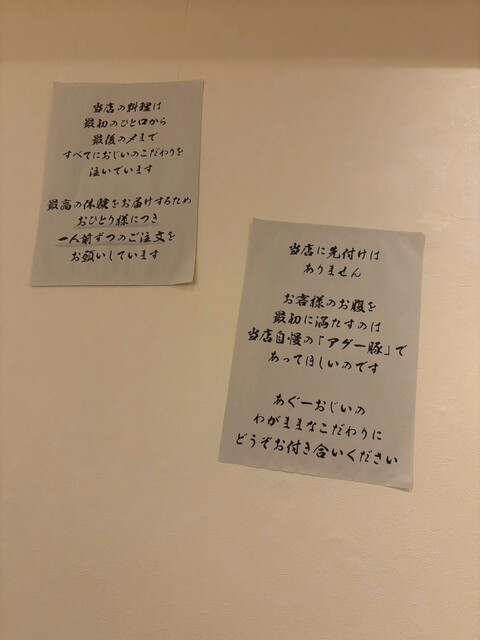 当店の料理は
最初のひと口から
最後の〆まで
すべてにおじいのこだわりを
注いでいます
最高の体験をお届けするため
おひとり様につき
一人前ずつのご注文を
お願いしています
当店に先付けは
ありません
お客様のお腹を
最初に満たすのは
当店自慢の「アグー豚」で
あってほしいのです
あぐーおじいの
わがままなこだわりに
どうぞお付き合いください